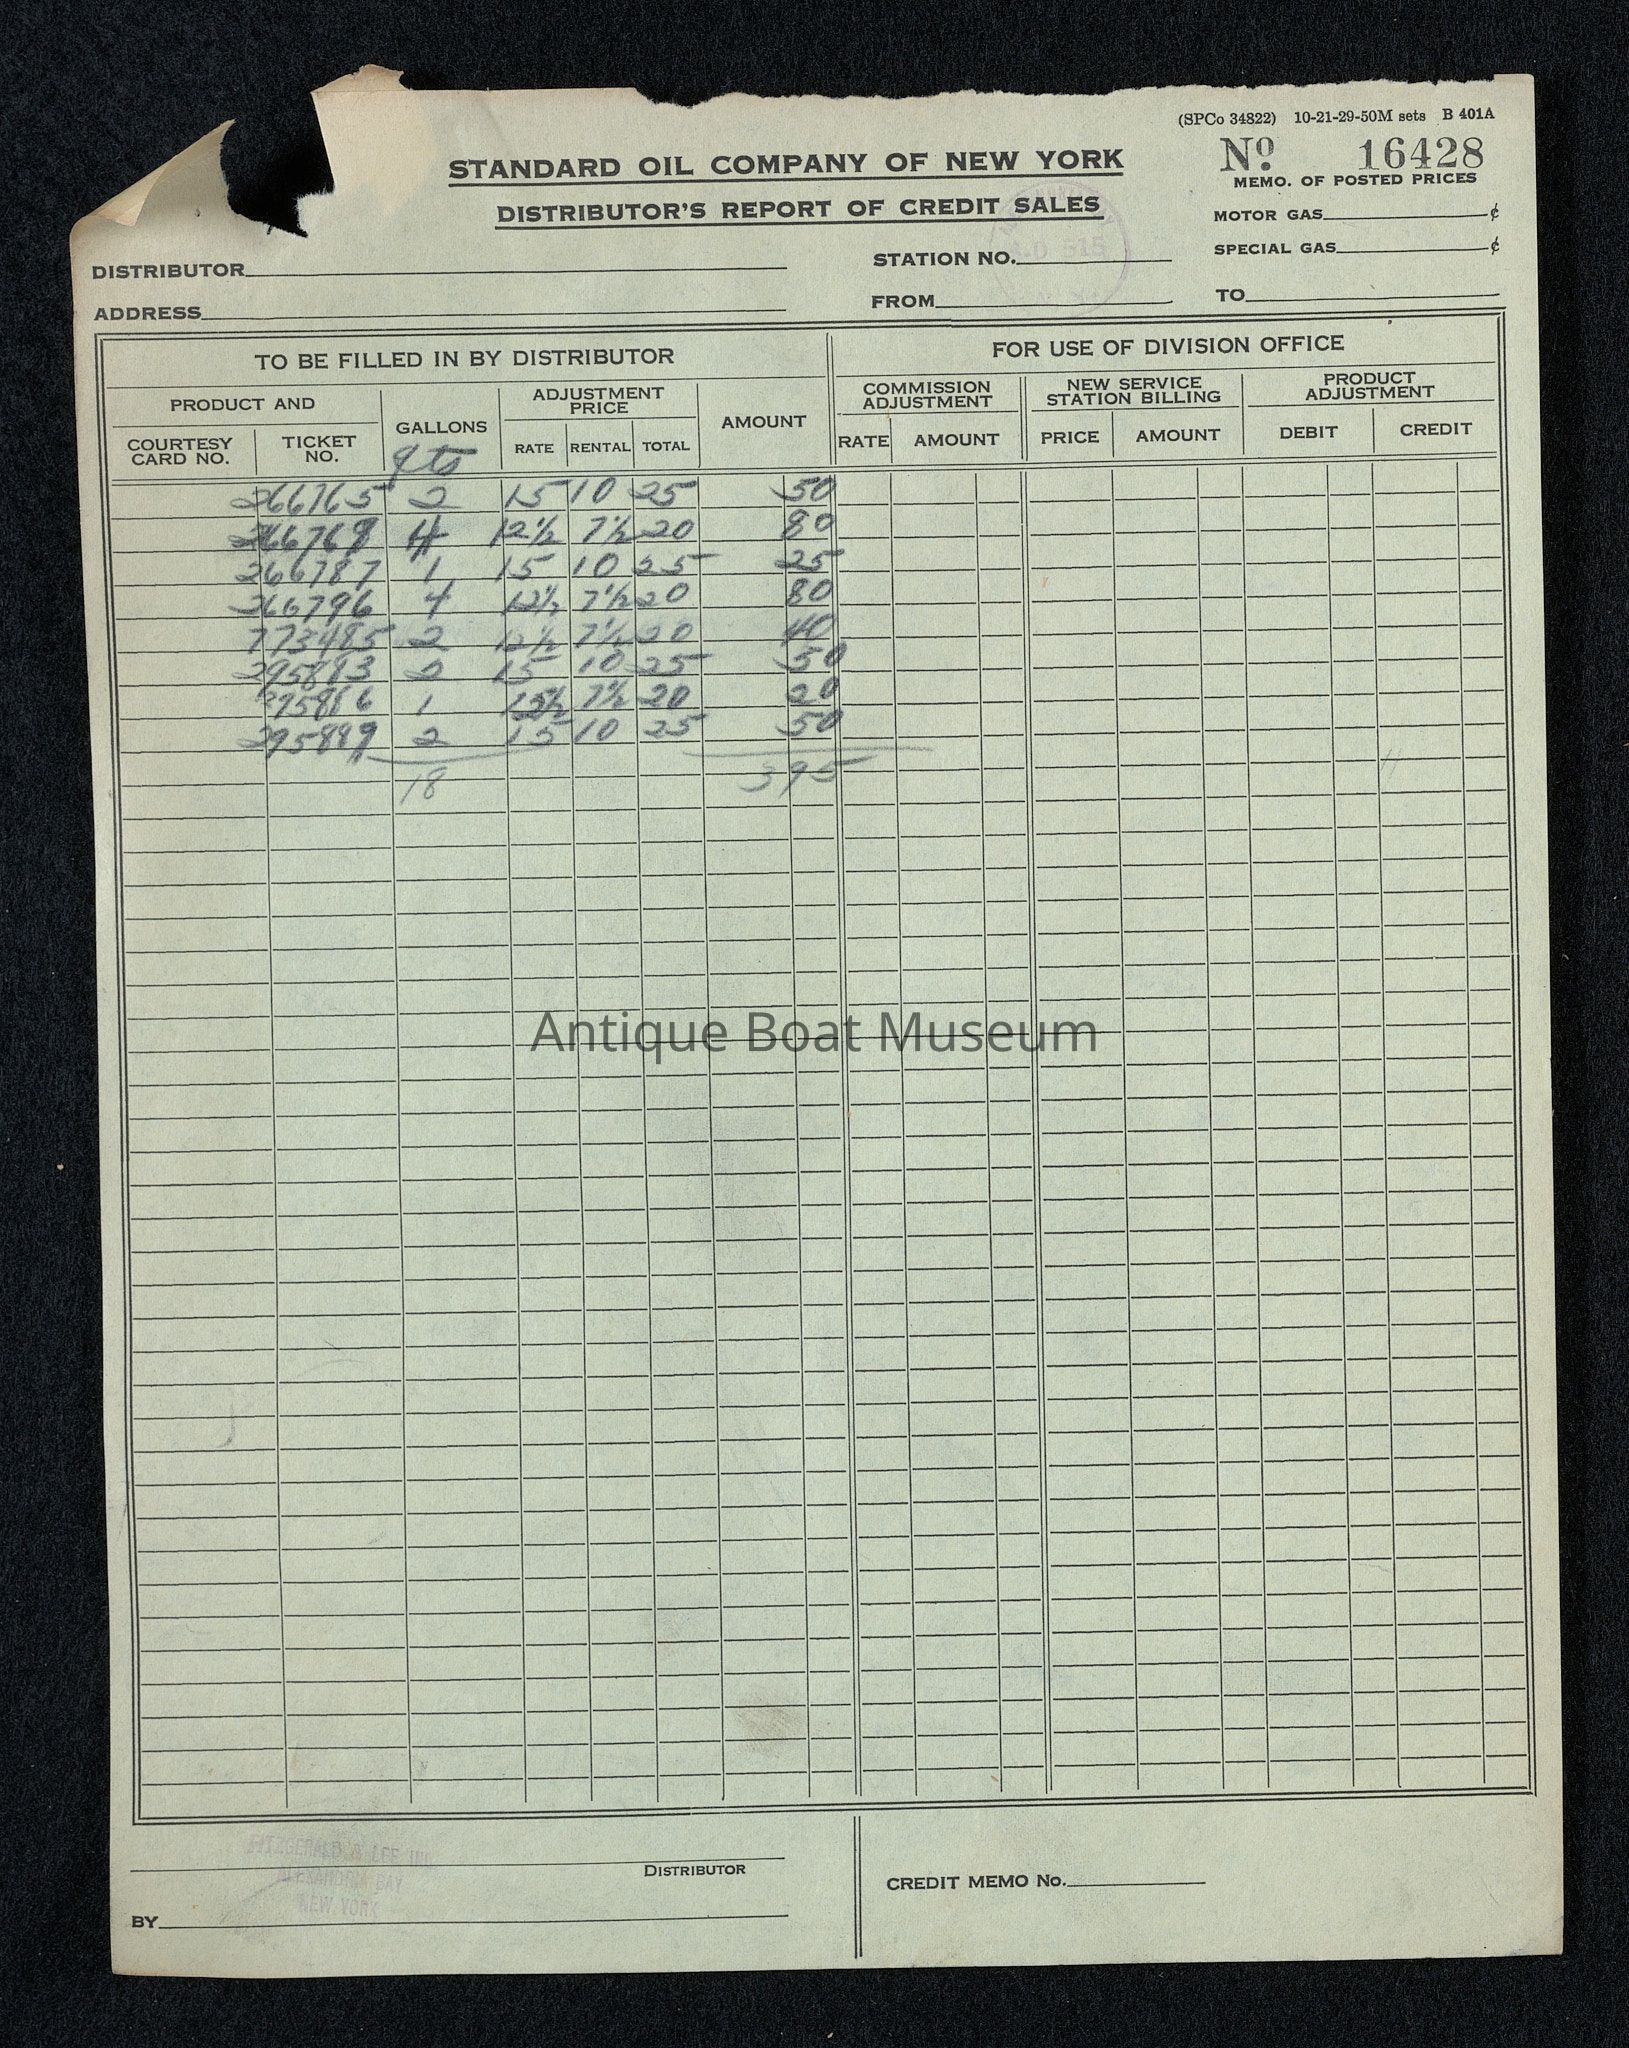 (SPCo 34822) 10-21-29-50M sets B 401A
STANDARD OIL COMPANY OF NEW YORK
No. 16428
DISTRIBUTOR'S REPORT OF CREDIT SALES
MEMO. OF POSTED PRICES
MOTOR GAS ¢
SPECIAL GAS ¢
DISTRIBUTOR
STATION NO.
ADDRESS
FROM TO
TO BE FILLED IN BY DISTRIBUTOR
FOR USE OF DIVISION OFFICE
PRODUCT AND
COURTESY CARD NO.
TICKET NO.
GALLONS
qts
ADJUSTMENT PRICE
RATE RENTAL TOTAL
AMOUNT
COMMISSION ADJUSTMENT
RATE AMOUNT
NEW SERVICE STATION BILLING
PRICE AMOUNT
PRODUCT ADJUSTMENT
DEBIT CREDIT
266765 2 15 10 25 50
266768 4 12½ 7½ 20 80
266787 1 15 10 25 25
266796 4 12½ 7½ 20 80
773485 2 12½ 7½ 20 40
295883 2 15 10 25 50
295886 1 12½ 7½ 20 20
295899 2 15 10 25 50
18 395
Antique Boat Museum
FITZGERALD & LEE INC
ALEXANDRIA BAY
NEW YORK
DISTRIBUTOR
CREDIT MEMO No.
BY